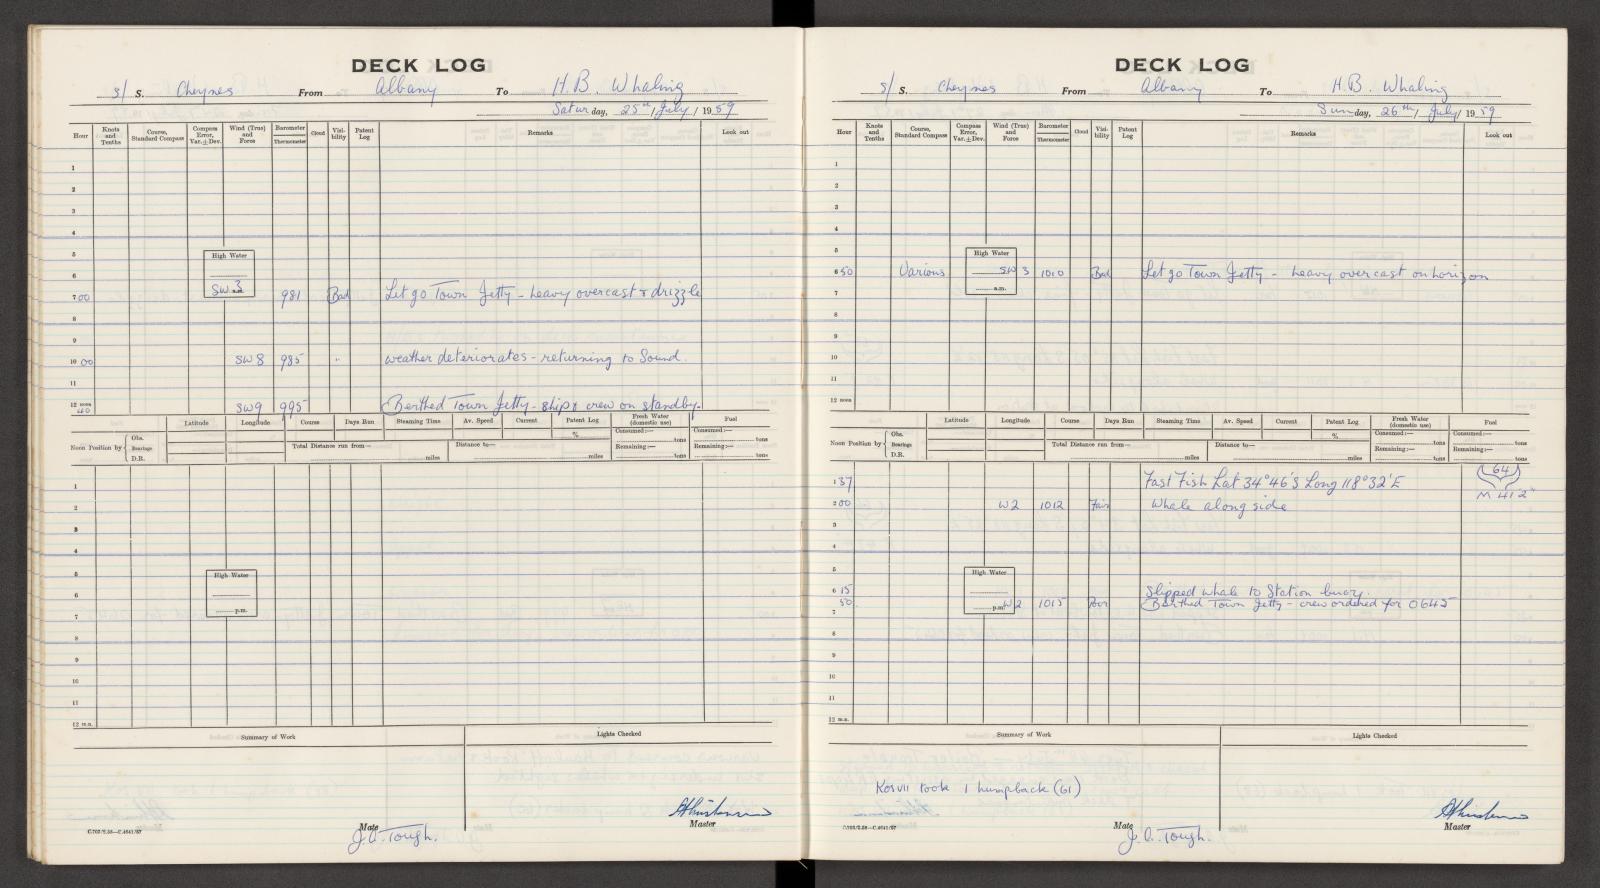 DECK LOG
s/ S. Cheynes From Albany To H.B. Whaling
Saturday, 25th/July/1959
Hour Knots and Tenths Course, Standard Compass Compass Error, Var. ± Dev. Wind (True) and Force Barometer Thermometer Cloud Visibility Patent Log Remarks Look out
1
2
3
4
5 High Water
6
7 00 SW 3 a.m. 981 Bad Let go Town Jetty - heavy overcast & drizzle
8
9
10 00 SW 8 985 " weather deteriorates - returning to Sound.
11
12 noon 40 SW 9 995 Berthed Town Jetty - ship & crew on standby.
Noon Position by Obs. Bearings D.R. Latitude Longitude Course Days Run Steaming Time Av. Speed Current Patent Log % Fresh Water (domestic use) Fuel
Consumed:— tons Consumed:—
Total Distance run from— miles Distance to— miles Remaining:— tons Remaining:— tons
1
2
3
4
5 High Water
6
7 p.m.
8
9
10
11
12 m.n.
Summary of Work Lights Checked
C.702/2.58—C.4641/57
Mate J.O. Tough.
Master
DECK LOG
s/ S. Cheynes From Albany To H.B. Whaling
Sunday, 26th/July/1959
Hour Knots and Tenths Course, Standard Compass Compass Error, Var. ± Dev. Wind (True) and Force Barometer Thermometer Cloud Visibility Patent Log Remarks Look out
1
2
3
4
5 High Water
6 50 Various SW 3 1010 Bad Let go Town Jetty - heavy overcast on horizon
7 a.m.
8
9
10
11
12 noon
Noon Position by Obs. Bearings D.R. Latitude Longitude Course Days Run Steaming Time Av. Speed Current Patent Log % Fresh Water (domestic use) Fuel
Consumed:— tons Consumed:— tons
Total Distance run from— miles Distance to— miles Remaining:— tons Remaining:— tons
1 37 Fast Fish Lat 34°46'S Long 118°32'E 64
M 41 2"
2 00 W2 1012 Fair Whale along side
3
4
5 High Water
6 15 Slipped whale to Station buoy.
50 p.m. W2 1015 Poor Berthed Town Jetty - crew ordered for 0645
7
8
9
10
11
12 m.n.
Summary of Work Lights Checked
Kos VII took 1 humpback (61)
C.702/2.58—C.4641/57
Mate J.O. Tough.
Master